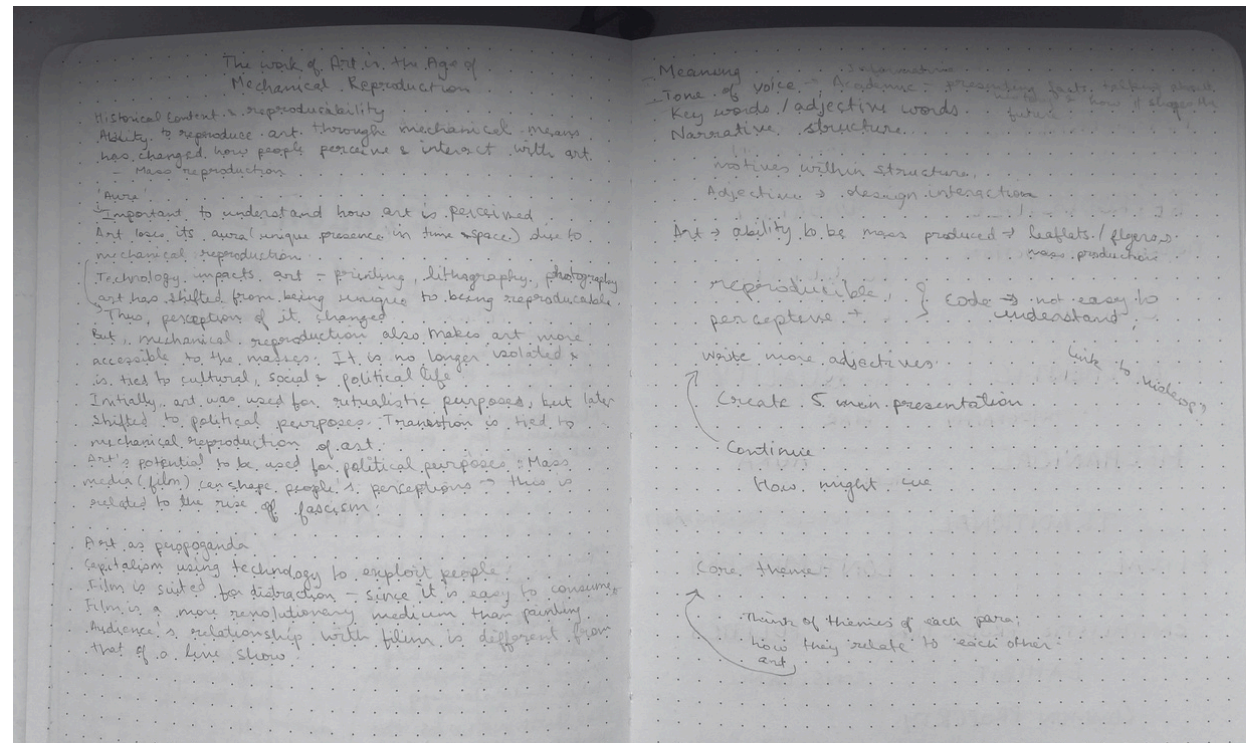 The work of Art in the Age of
Mechanical Reproduction
Historical Content & reproducability
Ability to reproduce art through mechanical means
has changed how people perceive & interact with art.
- Mass reproduction
'Aura'
Important to understand how art is perceived
Art loses its aura (unique presence in time & space) due to
mechanical reproduction.
Technology impacts art - printing, lithography, photography
art has shifted from being unique to being reproducable
Thus, perception of it changed
But, mechanical reproduction also makes art more
accessible to the masses. It is no longer isolated &
is tied to cultural, social & political life
Initially art was used for ritualistic purposes, but later
shifted to political purposes. Transition is tied to
mechanical reproduction of art.
Art's potential to be used for political purposes: Mass
media (film) can shape people's perceptions → this is
related to the rise of fascism.
Art as propoganda
Capitalism using technology to exploit people
Film is suited for distraction - since it is easy to consume
Film is a more revolutionary medium than painting
Audience's relationship with film is different from
that of a live show.
Meaning
Informative
Tone of voice → Academic - presenting facts, talking about
how it shapes the
future
Key words / adjective words
Narrative structure
motives within structure
Adjective → design interaction
Art → ability to be mass produced → leaflets / flyers
mass production
reproducible } code → not easy to
perceptive + understand
write more adjectives
Link to
Create 5 main presentation
Continue
How might we
Core theme
Think of themes of each para;
how they relate to each other
art